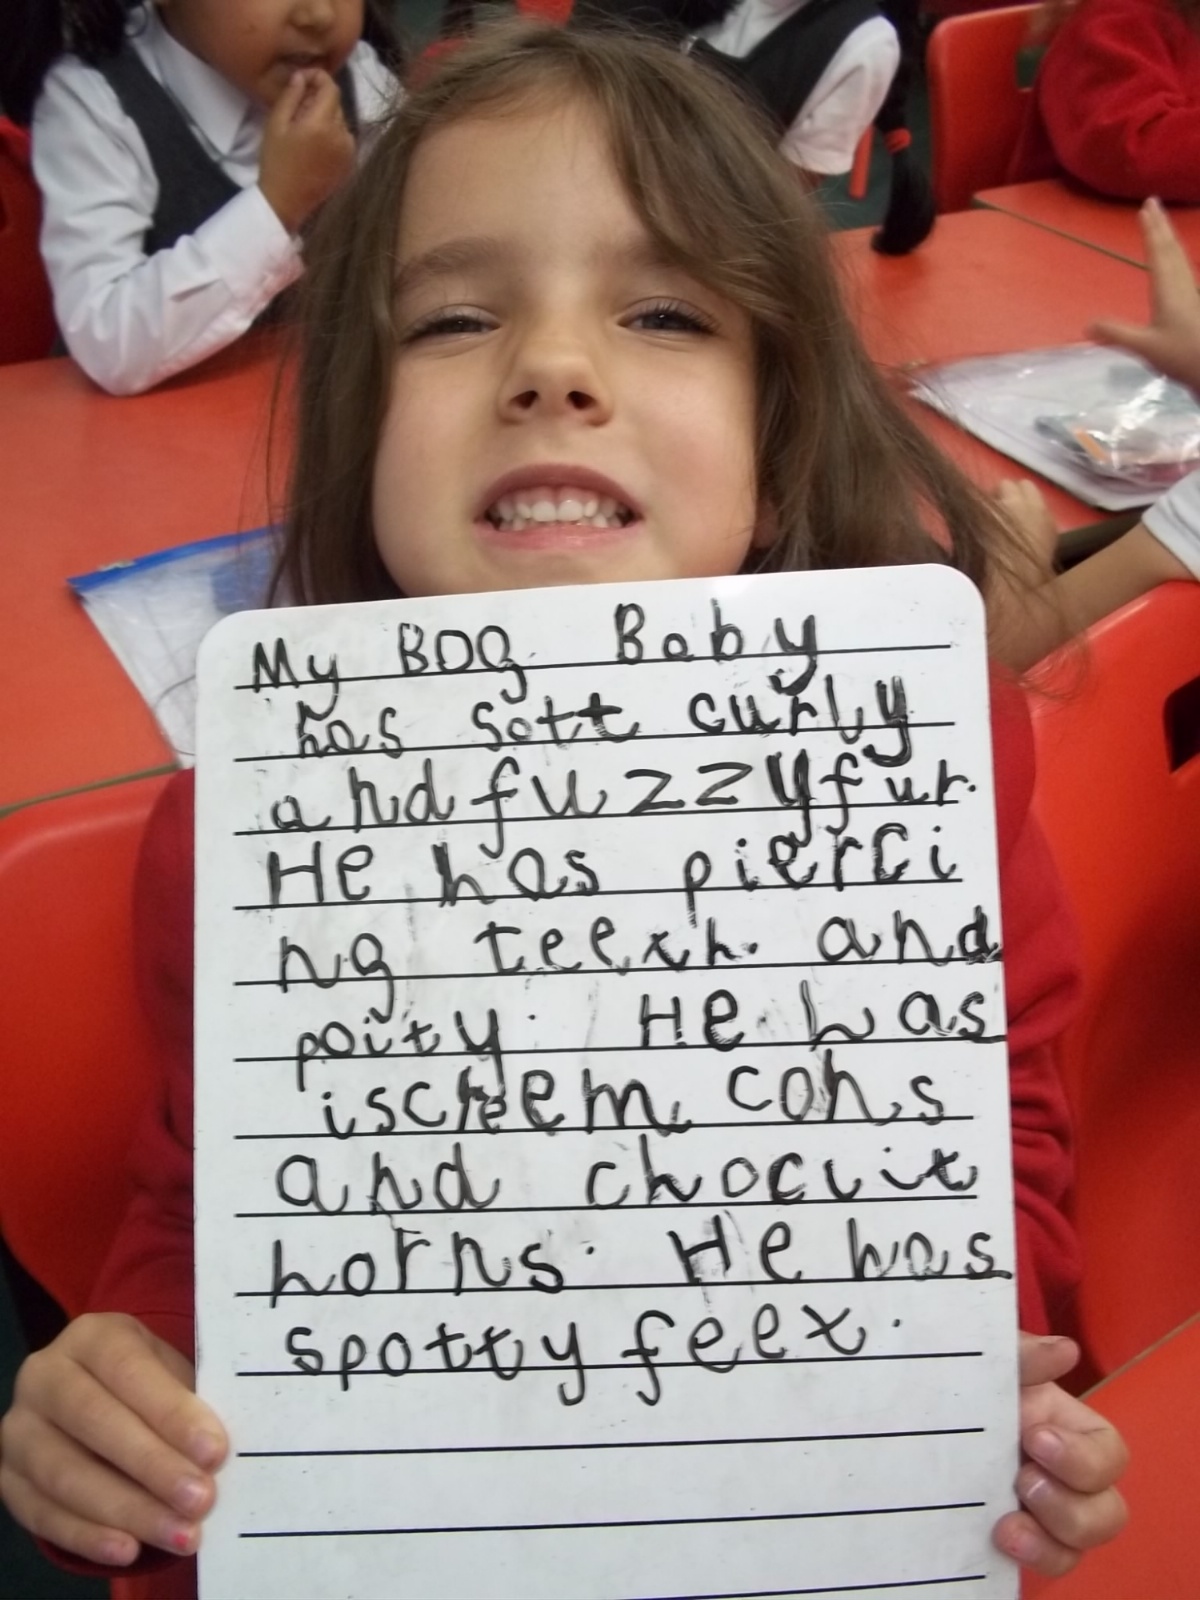 My BOG Baby
has sott curly
and fuzzy fur.
He has pierci
ng teeth. and
poity. He has
iscreem cons
and choclit
horns. He has
spotty feet.